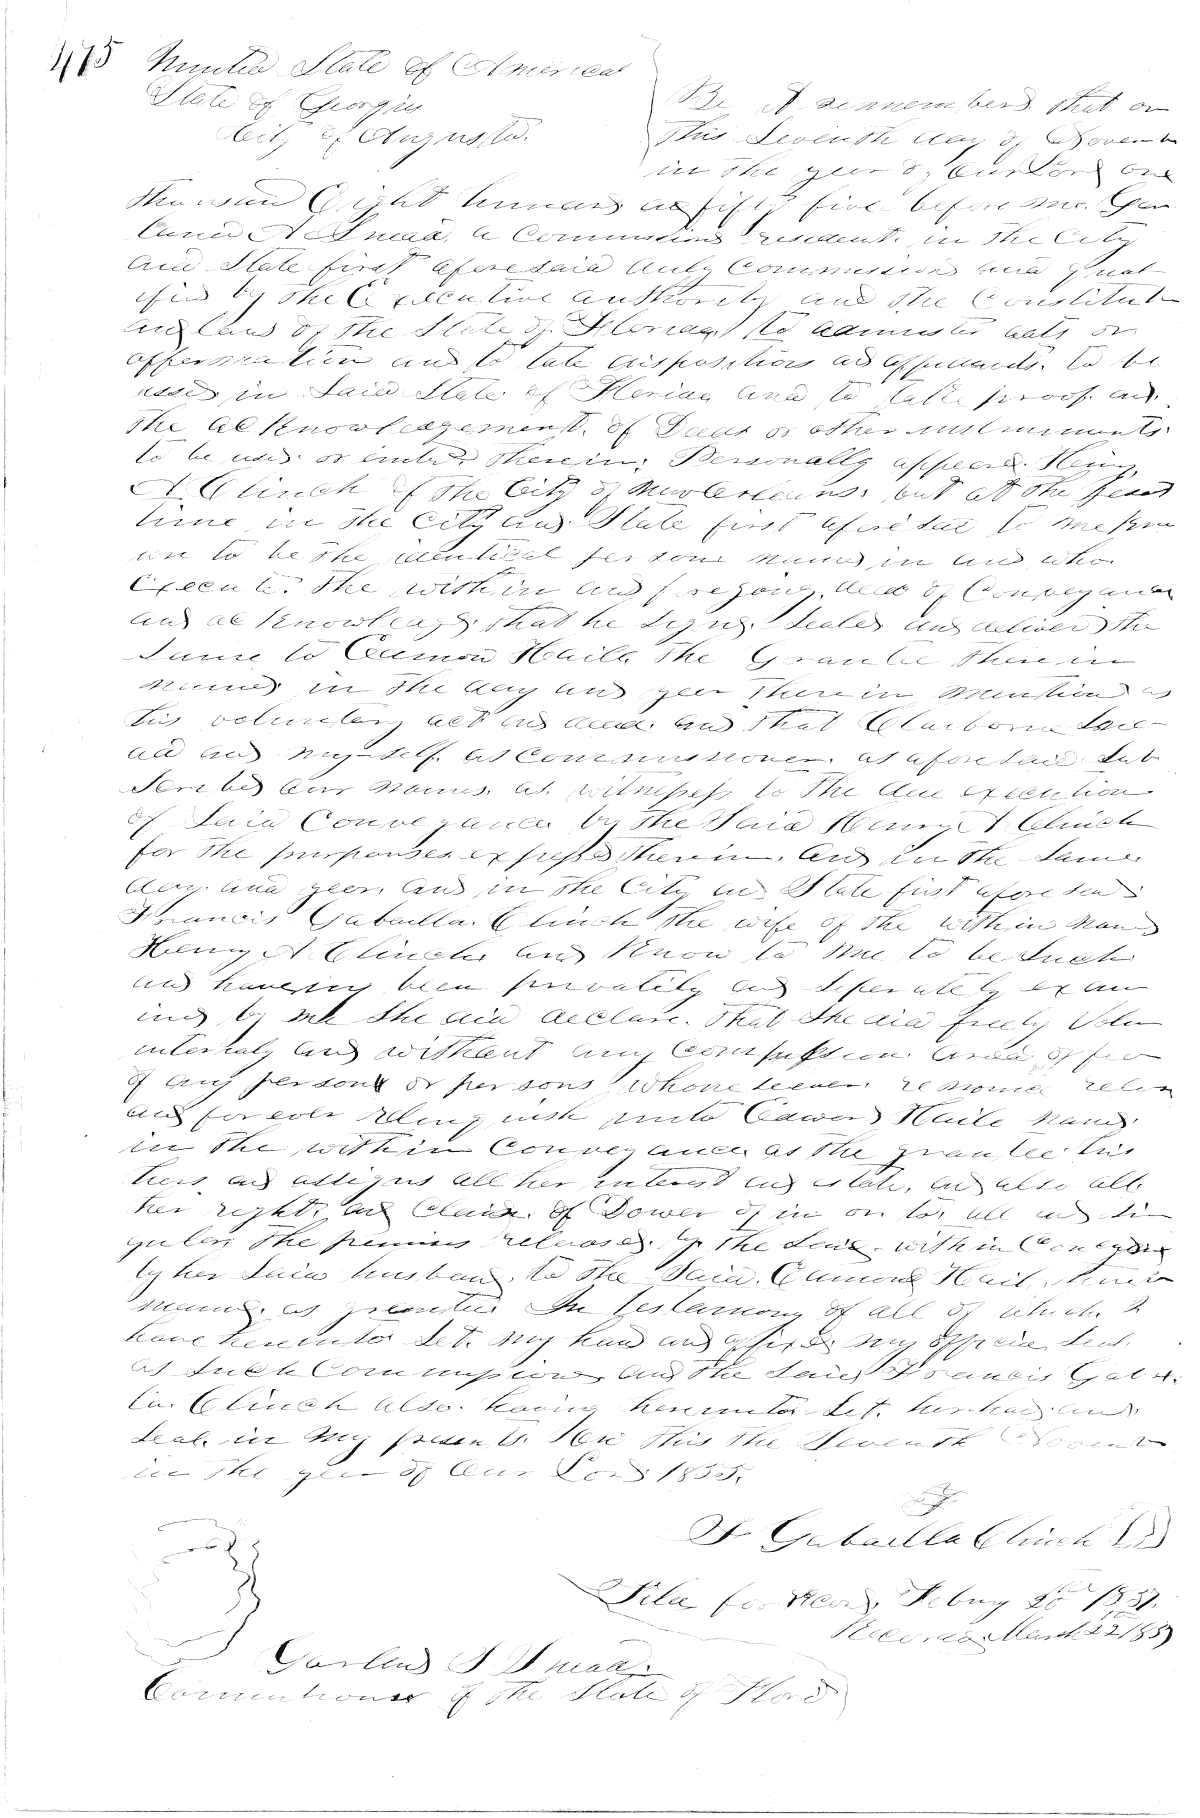 475
United State of America
State of Georgia
City of Augusta.
Be it remembered that on
this Seventh day of Novem
in the year of our Lord one
thousand Eight hundred and fifty five before me Gar
land A Snead a Commissioned resident in the City
and State first aforesaid duly Commissioned and qual
ified by the Executive authority and the Constitut
and laws of the State of Florida to administer oaths or
affermation and to take dispositions and affidavids. to be
used in Said State of Florida and to take proof and
the acknowledgement. of Deeds or other instruments
to be used or therein; Personally appeared Henry
A Clinch of the City of New Orleans, but at the
time in the City and State first aforesaid to me kno
wn to be the identical person named in and who
Executed the within and foregoing deed of Conveyance
and acknowledged that he Signed Sealed and delivered the
Same to Edmond Haile the Grantee therein
named in the day and year therein mentioned as
his voluntary act and deed and that Claiborne Sne
ad and myself as Commissioner as aforesaid Sub
Scribed our names as witnesses to the due execution
of Said Conveyance by the Said Henry A Clinch
for the purposes expressed therein. And in the Same
day and year and in the City and State first aforesaid
Francis Gabailla Clinch the wife of the within named
Henry A Clinch and Know to me to be Such
and haveing been privately and Seperately exam
ined by me She did declare. that She did freely Volun
and without any Compulsion of
of any person or persons whomesoever
and forever relinquish unto Edward Haile named
in the within Conveyance as the grantee his
heirs and assigns all her interest and estate, and also all
her right and Claim of Dower of in or to all and Sin
guler the premises released by the Said within
by her Said husband to the Said Edmond Haile
named as grantee In testamony of all of which I
have hereunto Set my hand and affixed my official Seal
as Such Commissioner and the Said Francis Gabri
lla Clinch also having hereunto Set her hand and
Seal in My presents. this the Seventh Novem
in the year of our Lord 1855.
F Gabailla Clinch LS
Filed for Record Febury 1857.
Recorded March 22 1857
Garland A Snead
Commitioner of the State of Flord